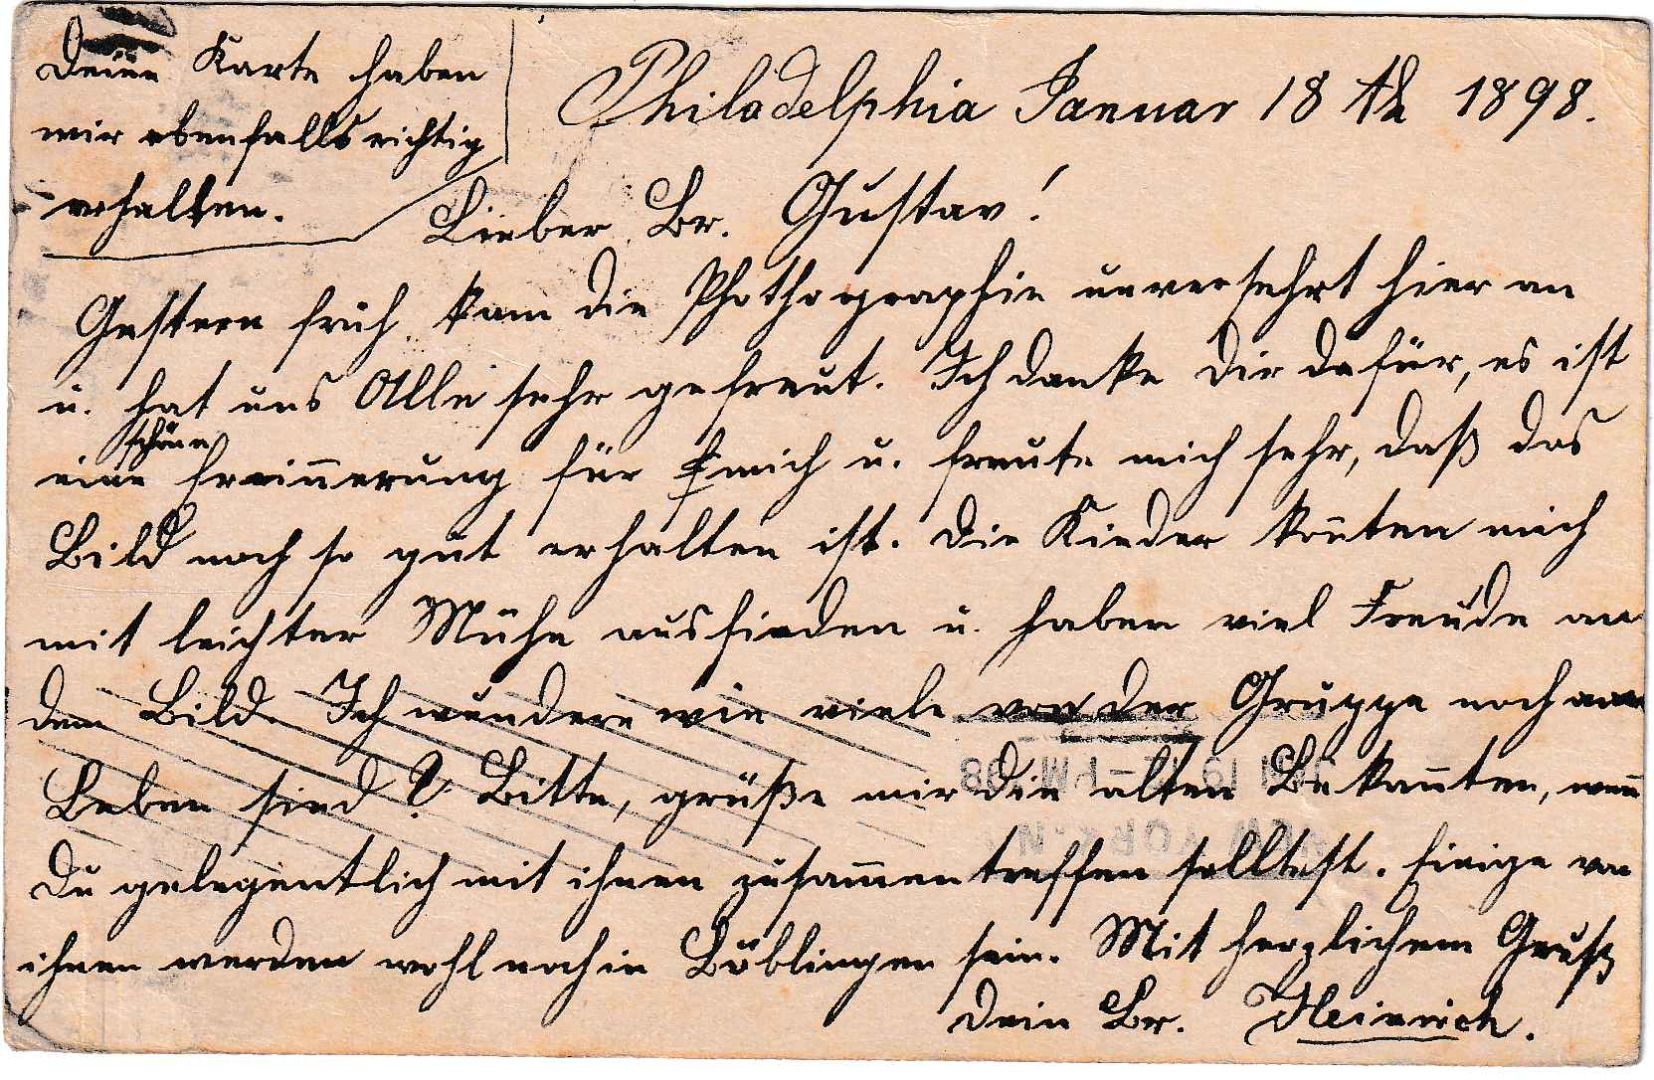 Deine Karte haben
wir ebenfalls richtig
erhalten.
Philadelphia Januar 18th 1898.
Lieber Br. Gustav!
Gestern früh kam die Phothographie unversehrt hier an
u. hat uns Alle sehr gefreut. Ich danke Dir dafür, es ist
eine schöne Erinnerung für mich u. freute mich sehr, daß das
Bild noch so gut erhalten ist. Die Kinder konnten mich
mit leichter Mühe ausfinden u. haben viel Freude an
dem Bild. Ich wundere wie viele von der Gruppe noch am
Leben sind? Bitte, grüße mir die alten Bekannten, wenn
Du gelegentlich mit ihnen zusammentreffen solltest. Einige von
ihnen werden wohl noch in Böblingen sein. Mit herzlichem Gruß
Dein Br. Heinrich.